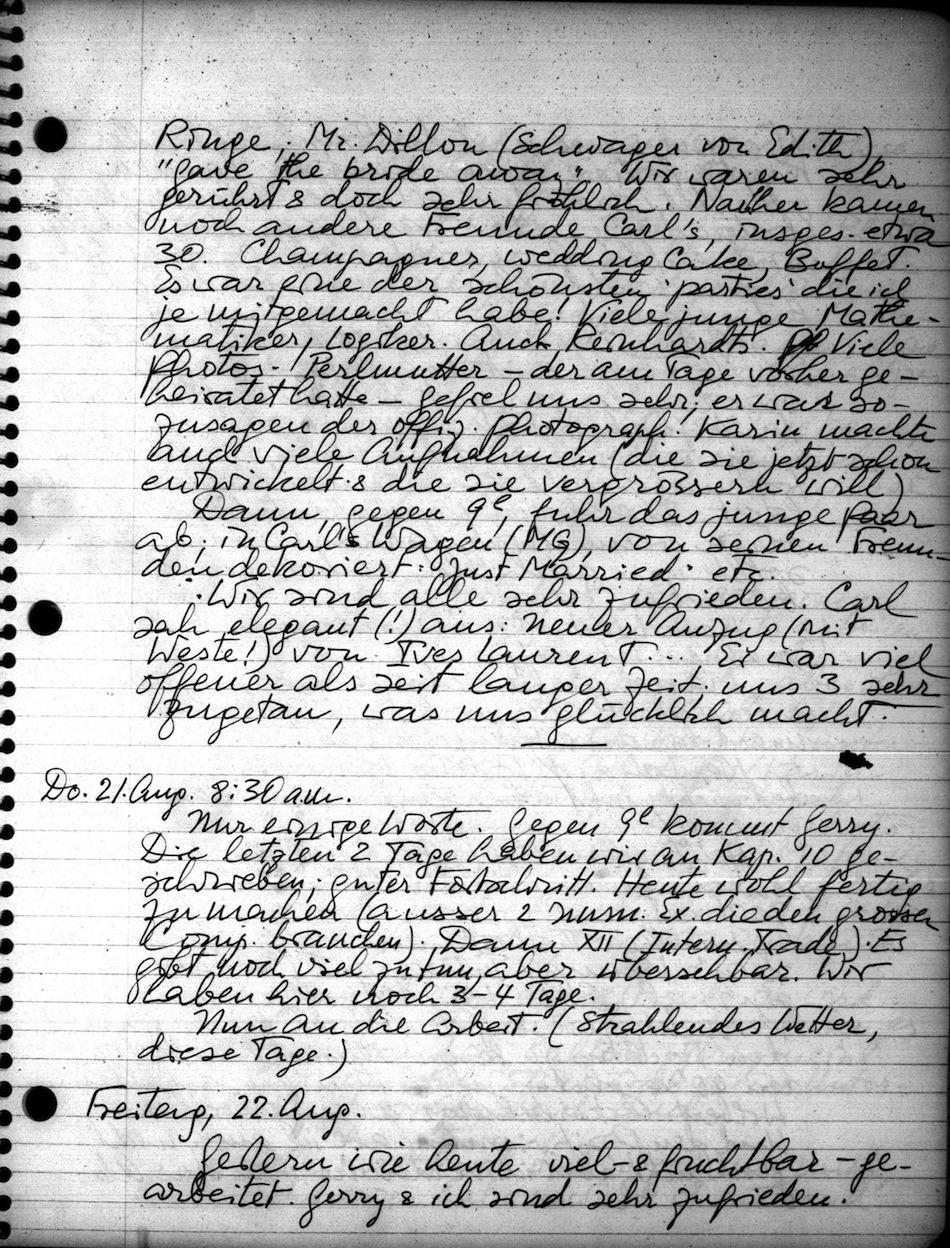 Ringe; Mr. Dillon (Schwager von Edith)
"gave the bride away". Wir waren sehr
gerührt & doch sehr fröhlich. Nachher kamen
noch andere Freunde Carl's, insges. etwa
30. Champagner, wedding cake, Buffet.
Es war eine der schönsten 'parties' die ich
je mitgemacht habe! Viele junge Mathe-
matiker, Logiker. Auch Reinhardts. Viele
Photos. Perlmutter – der am Tage vorher ge-
heiratet hatte – gefiel uns sehr; er war so-
zusagen der offiz. Photograph. Karin machte
auch viele Aufnahmen (die sie jetzt schon
entwickelt & die sie vergrössern will)
Dann, gegen 9h, fuhr das junge Paar
ab, in Carl's Wagen (MG), von seinen Freun-
den dekoriert: Just Married · etc.
Wir sind alle sehr zufrieden. Carl
sah elegant (!) aus: neuer Anzug (mit
Weste!) von Ives Laurent... Er war viel
offener als seit langer Zeit. uns 3 sehr
zugetan, was uns glücklich macht.
Do. 21. Aug. 8:30 am.
Nur einige Worte. Gegen 9h kommt Gerry.
Die letzten 2 Tage haben wir an Kap. 10 ge-
schrieben; guter Fortschritt. Heute wohl fertig
zu machen (ausser 2 num. Ex. die den grossen
Comp. brauchen). Dann XII (Intern. Trade). Es
gibt noch viel zu tun, aber übersehbar. Wir
haben hier noch 3–4 Tage.
Nun an die Arbeit. (Strahlendes Wetter,
diese Tage.)
Freitag, 22. Aug.
Gestern wie heute viel - & fruchtbar – ge-
arbeitet. Gerry & ich sind sehr zufrieden.